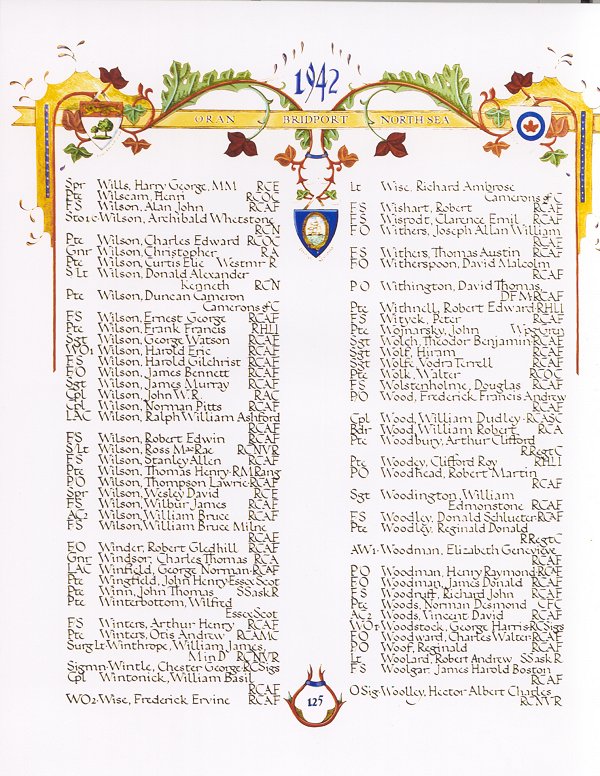 1942
ORAN BRIDPORT NORTH SEA
Spr Wills, Harry George, MM RCE
Pte Wilseam, Henri RCOC
FS Wilson, Alan John RCAF
Sto1c Wilson, Archibald Whetstone
RCN
Pte Wilson, Charles Edward RCOC
Gnr Wilson, Christopher RA
Pte Wilson, Curtis Elie Westmr R
S Lt Wilson, Donald Alexander
Kenneth RCN
Pte Wilson, Duncan Cameron
Camerons of C
FS Wilson, Ernest George RCAF
Pte Wilson, Frank Francis RHLI
Sgt Wilson, George Watson RCAF
WO1 Wilson, Harold Eric RCAF
FS Wilson, Harold Gilchrist RCAF
FO Wilson, James Bennett RCAF
Sgt Wilson, James Murray RCAF
Cpl Wilson, John W.R. RAC
Cpl Wilson, Norman Pitts RCAF
LAC Wilson, Ralph William Ashford
RCAF
FS Wilson, Robert Edwin RCAF
S/Lt Wilson, Ross MacRae RCNVR
FS Wilson, Stanley Allen RCAF
Pte Wilson, Thomas Henry RM Rang
PO Wilson, Thompson Lawrie RCAF
Spr Wilson, Wesley David RCE
FS Wilson, Wilbur James RCAF
AC2 Wilson, William Bruce RCAF
FS Wilson, William Bruce Milne
RCAF
FO Winder, Robert Gledhill RCAF
Gnr Windsor, Charles Thomas RCA
LAC Winfield, George Norman RCAF
Pte Wingfield, John Henry Essex Scot
Pte Winn, John Thomas SSaskR
Pte Winterbottom, Wilfred
Essex Scot
FS Winters, Arthur Henry RCAF
Pte Winters, Otis Andrew RCAMC
Surg Lt Winthrope, William James,
M in D RCNVR
Sigmn Wintle, Chester George RCSigs
Cpl Wintonick, William Basil
RCAF
WO2 Wise, Frederick Ervine RCAF
Lt Wise, Richard Ambrose
Camerons of C
FS Wishart, Robert RCAF
FS Wisrodt, Clarence Emil RCAF
FO Withers, Joseph Allan William
RCAF
FS Withers, Thomas Austin RCAF
FO Witherspoon, David Malcolm
RCAF
PO Withington, David Thomas,
DFM RCAF
Pte Withnell, Robert Edward RHLI
FS Wityck, Peter RCAF
Pte Wojnarsky, John Wpg Gren
Sgt Wolch, Theodor Benjamin RCAF
Sgt Wolf, Hiram RCAF
Sgt Wolfe, Vodra Terrell RCAF
Pte Wolk, Walter RCOC
FS Wolstenholme, Douglas RCAF
PO Wood, Frederick Francis Andrew
RCAF
Cpl Wood, William Dudley RCASC
Bdr Wood, William Robert RCA
Pte Woodbury, Arthur Clifford
RRegtC
Pte Woodey, Clifford Roy RHLI
PO Woodhead, Robert Martin
RCAF
Sgt Woodington, William
Edmonstone RCAF
FS Woodley, Donald Schlueter RCAF
Pte Woodley, Reginald Donald
RRegtC
AW1 Woodman, Elizabeth Genevieve
RCAF
PO Woodman, Henry Raymond RCAF
FO Woodman, James Donald RCAF
FS Woodruff, Richard John RCAF
Pte Woods, Norman Desmond CFC
AC2 Woods, Vincent David RCAF
WO1 Woodstock, George Harris RCSigs
FO Woodward, Charles Walter RCAF
PO Woof, Reginald RCAF
Lt Woolard, Robert Andrew SSask R
FS Woolgar, James Harold Boston
RCAF
OSig Woolley, Hector Albert Charles
RCNVR
125